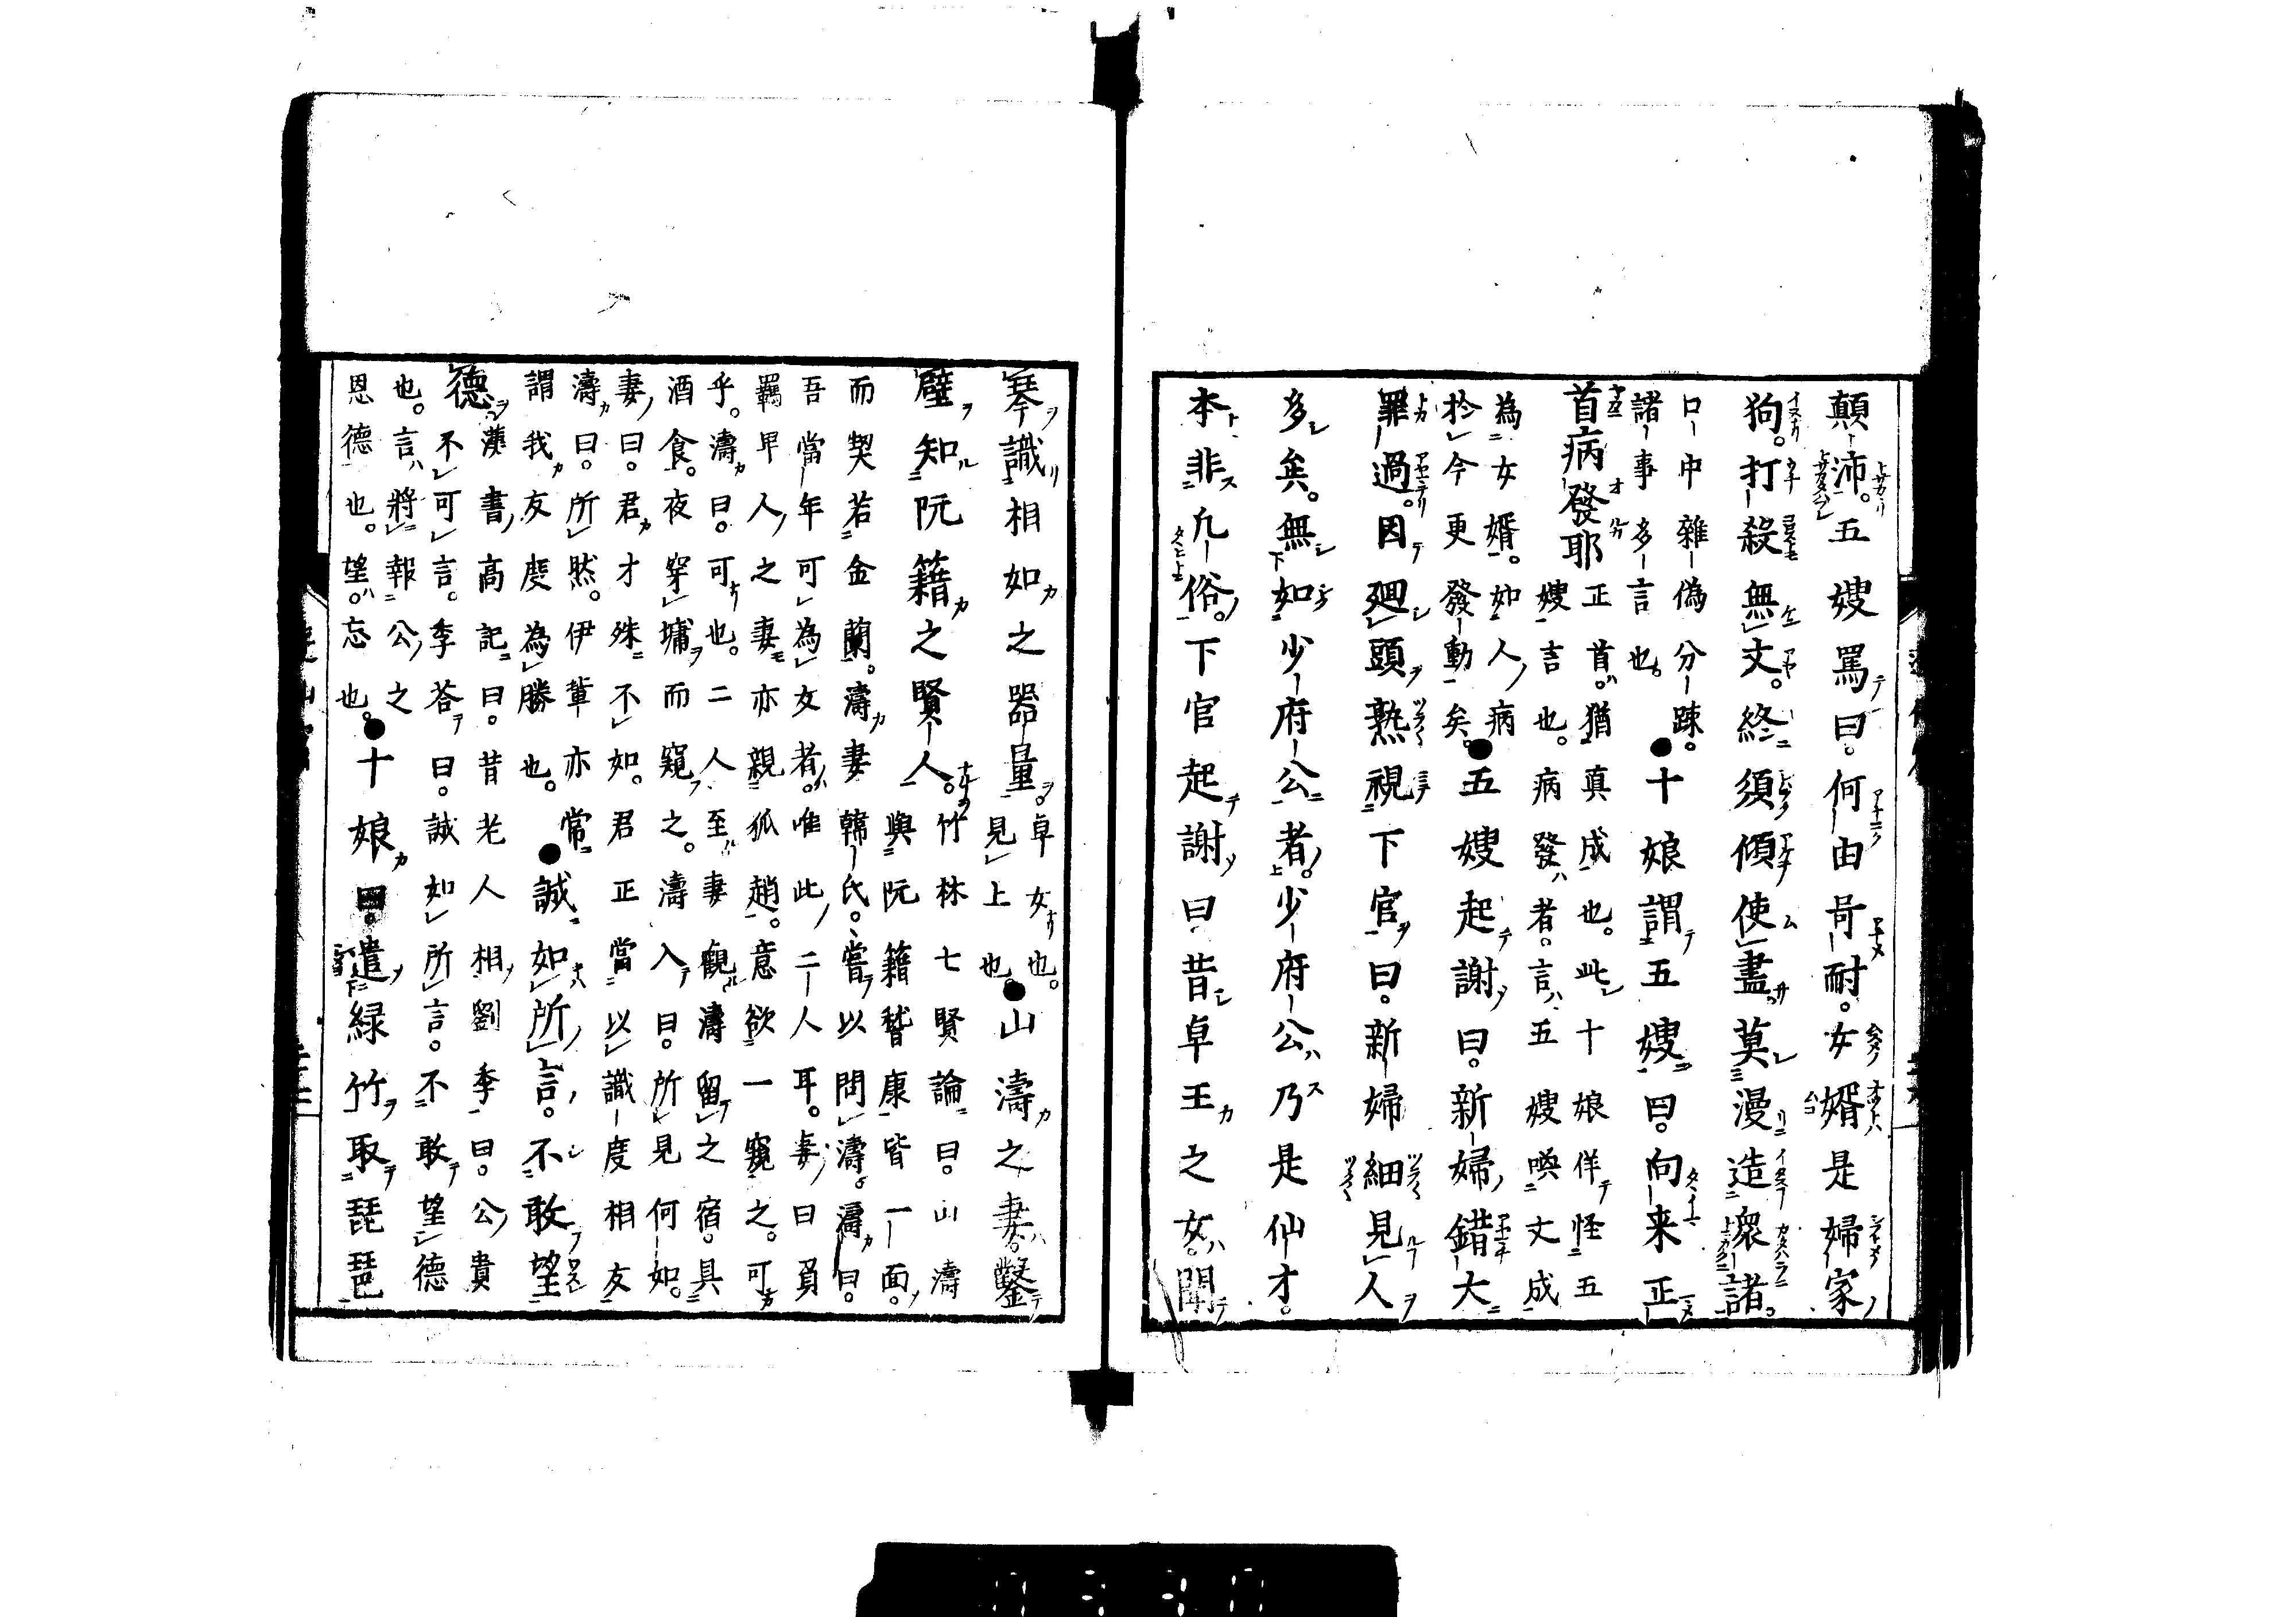 顛沛。五嫂罵曰。何由叵耐。女婿是婦家
狗。打殺無文。終須傾使盡。莫漫造衆諸。
口中雜偽分疎。
諸事多言也。
●十娘謂五嫂曰。向来正
首病發耶
正首。猶真成也。此十娘佯怪五
嫂言也。病發者。言五嫂喚丈成
為女婿。如人病
於今更發動矣。
●五嫂起謝曰。新婦錯大
罪過。因廻頭熟視下官曰。新婦細見人
多矣。無如少府公者。少府公乃是仙才。
本非凡俗。下官起謝曰昔卓王之女。聞
琴識相如之器量。
卓女也。
見上也。
●山濤之妻。鑿
壁知阮籍之賢人。
竹林七賢論曰。山濤
與阮籍嵇康皆一面。
而契若金蘭。濤妻韓氏。嘗以問濤。濤曰。
吾當年可為友者。唯此二人耳。妻曰負
羈之妻亦親狐趙。意欲一窺之。可
乎。濤曰。可也。二人至。妻觀濤留之宿。具
酒食。夜穿墉而窺之。濤入曰。所見何如。
妻曰。君才殊不如。君正當以識度相友
濤曰。所然。伊輩亦常
謂我友度為勝也。
●誠如所言。不敢望
德
漢書高記曰。昔老人相劉季曰。公貴
不可言。季荅曰。誠如所言。不敢望德
也。言將報公之
恩德也。望。忘也。
●十娘曰。遣緑竹取琵琶